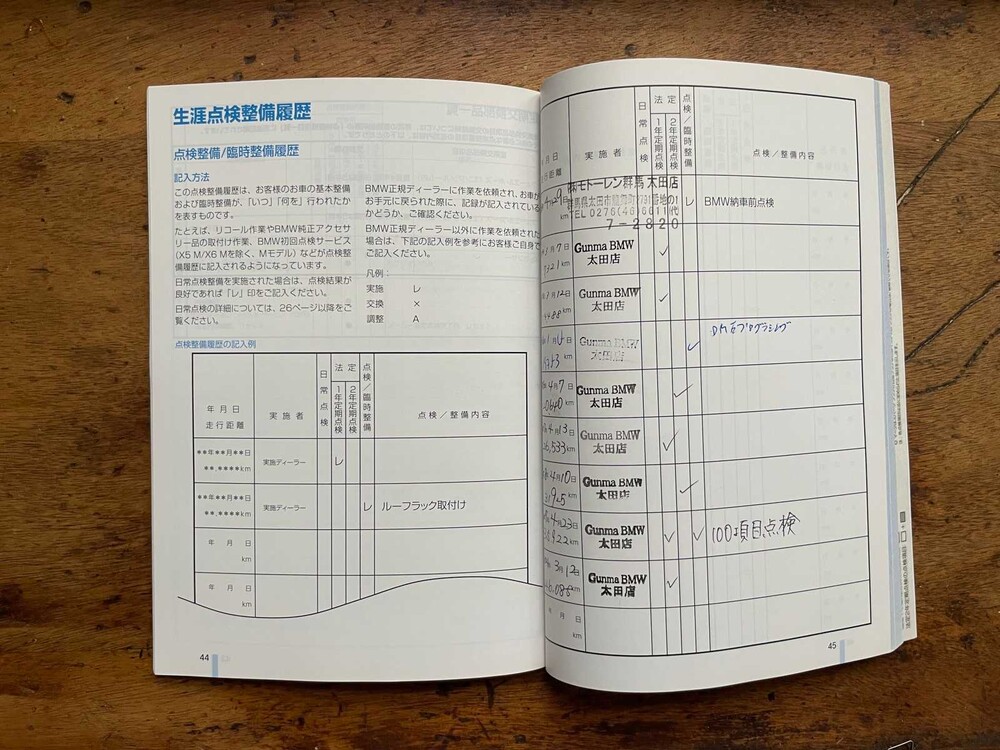 生涯点検整備履歴
点検整備/臨時整備履歴
記入方法
この点検整備履歴は、お客様のお車の基本整備
および臨時整備が、「いつ」「何を」行われたか
を表すものです。
たとえば、リコール作業やBMW純正アクセサ
リー品の取付け作業、BMW初回点検サービス
(X5 M/X6 Mを除く、Mモデル)などが点検整
備履歴に記入されるようになっています。
日常点検整備を実施された場合は、点検結果が
良好であれば「レ」印をご記入ください。
日常点検の詳細については、26ページ以降をご
覧ください。
BMW正規ディーラーに作業を依頼され、お車が
お手元に戻られた際に、記録が記入されている
かどうか、ご確認ください。
BMW正規ディーラー以外に作業を依頼された
場合は、下記の記入例を参考にお客様ご自身で
ご記入ください。
凡例:
実施 レ
交換 ×
調整 A
点検整備履歴の記入例
年月日
走行距離
実施者
日常点検
法定
1年定期点検
2年定期点検
点検/臨時整備
点検/整備内容
**年**月**日
**,****km
実施ディーラー
レ
**年**月**日
**,****km
実施ディーラー
レ
ルーフラック取付け
年 月 日
km
年 月 日
km
44
月日
距離
実施者
日常点検
法定
1年定期点検
2年定期点検
点検/臨時整備
点検/整備内容
モトーレン群馬 太田店
群馬県太田市
TEL 0276(46)6011代
7-2820
レ
BMW納車前点検
1月7日
km
Gunma BMW
太田店
✓
1月12日
km
Gunma BMW
太田店
✓
月6日
km
Gunma BMW
太田店
✓
プログラミング
4月7日
0640km
Gunma BMW
太田店
✓
4月13日
6,533km
Gunma BMW
太田店
✓
4月10日
1925km
Gunma BMW
太田店
✓
4月23日
922km
Gunma BMW
太田店
✓
✓
100項目点検
3月12日
6,088km
Gunma BMW
太田店
✓
月 日
km
45